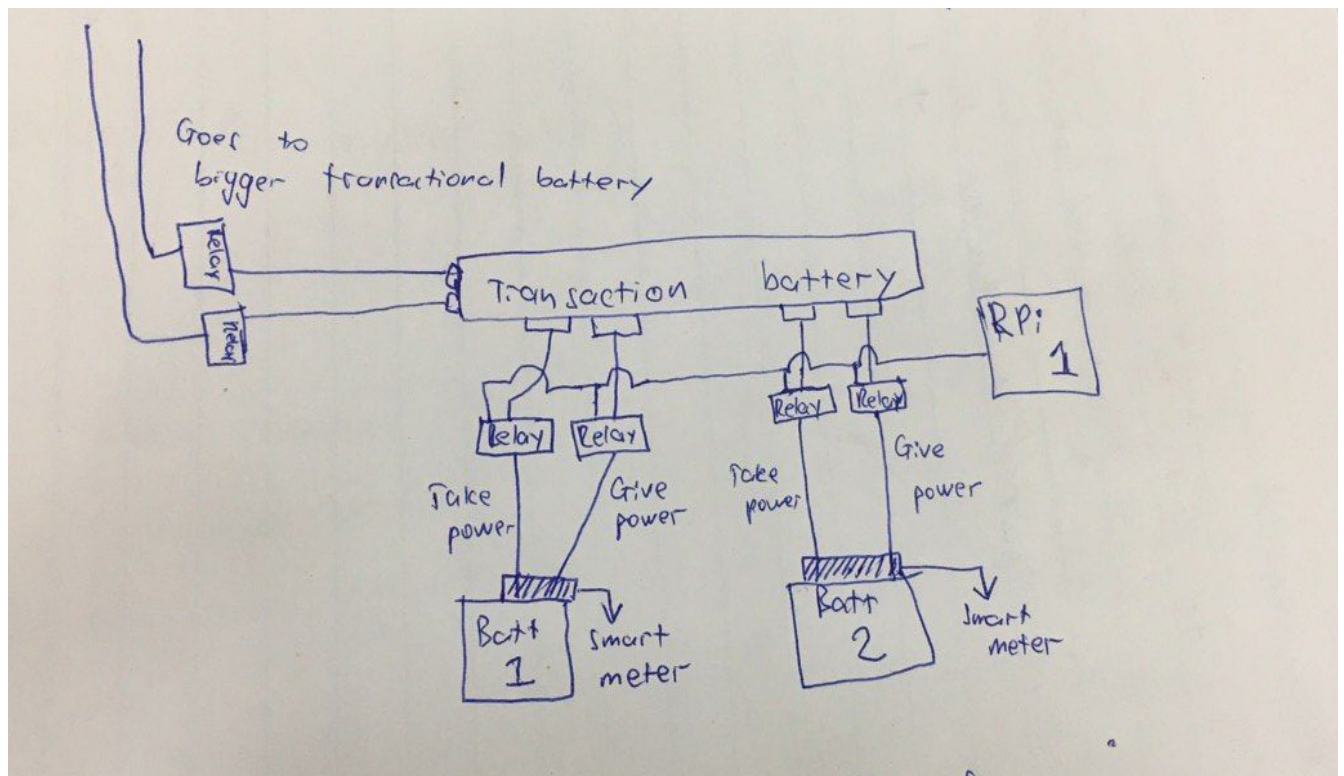 Goes to
bigger tranractional battery
Relay
Relay
Transaction battery
RPi
1
Relay
Relay
Relay
Relay
Take
power
Give
power
Take
power
Give
power
Batt
1
Smart
meter
Batt
2
Smart
meter